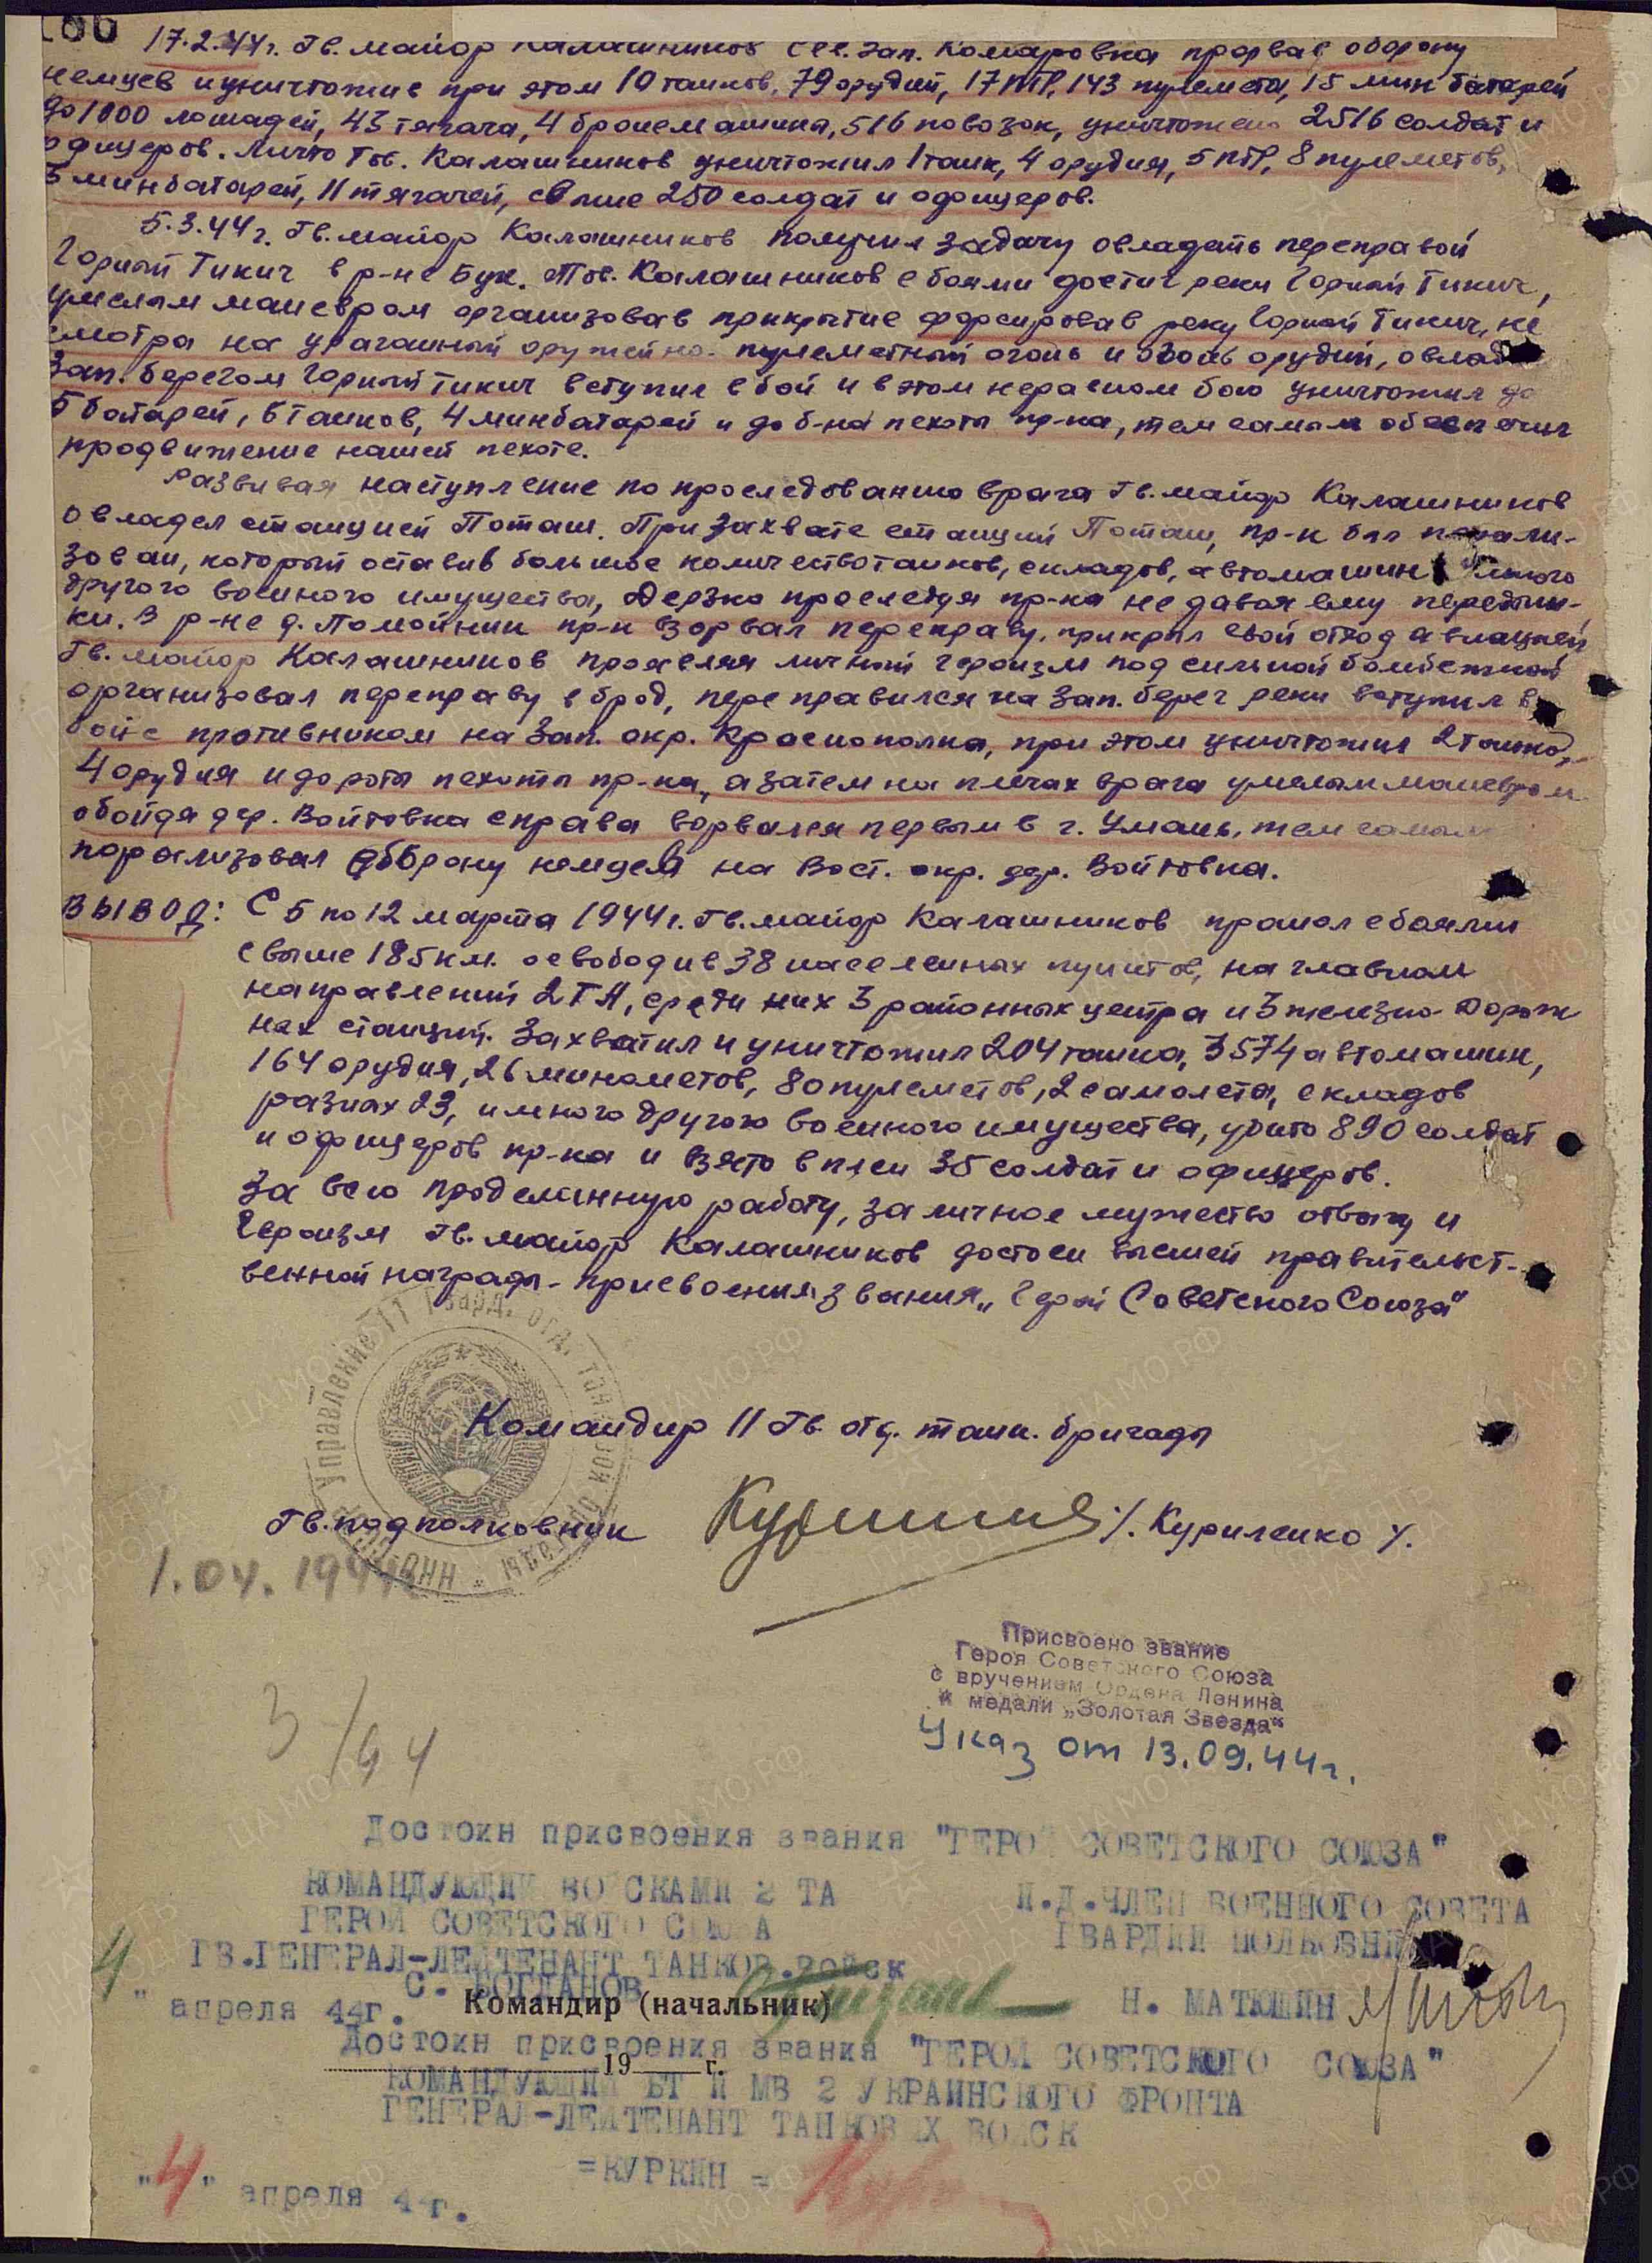 17.2.44г. Гв. майор Калашников сев. зап. Комаровка прорвав оборону
немцев и уничтожив при этом 10 танков, 79 орудий, 17 ПТР, 143 пулемета, 15 мин батарей
до 1000 лошадей, 43 тягача, 4 бронемашины, 516 повозок, уничтожено 2516 солдат и
офицеров. Лично тов. Калашников уничтожил 1 танк, 4 орудия, 5 ПТР, 8 пулеметов,
5 минбатарей, 11 тягачей, свыше 250 солдат и офицеров.
5.3.44г. Гв. майор Калашников получил задачу овладеть переправой
Горный Тикич в р-не Бук. Тов. Калашников с боями достиг реки Горный Тикич,
умелым маневром организовав прикрытие форсировав реку Горный Тикич, не
смотря на ураганный оружейно-пулеметный огонь и огонь орудий, овладев
зап. берегом Горный Тикич вступил в бой и в этом неравном бою уничтожил до
5 батарей, 6 танков, 4 минбатарей и до б-на пехоты пр-ка, тем самым обеспечил
продвижение нашей пехоте.
Развивая наступление по проследованию врага Гв. майор Калашников
овладел станцией Поташ. При захвате станции Поташ, пр-к был парали-
зован, который оставив большое количество танков, складов, автомашин и много
другого военного имущества, Дерзко проследуя пр-ка не давая ему передыш-
ки. В р-не д. Помойник пр-к взорвал переправу, прикрыл свой отход авиацией
Гв. майор Калашников проявляя личный героизм под сильной бомбежкой
организовал переправу в брод, переправился на зап. берег реки вступил в
бой с противником на зап. окр. Краснополка, при этом уничтожил 2 танка,
4 орудия и до роты пехоты пр-ка, а затем на плечах врага умелым маневром
обойдя дер. Войтовка справа ворвался первым в г. Умань, тем самым
парализовал оборону немцев на Вост. окр. дер. Войтовка.
ВЫВОД: С 5 по 12 марта 1944г. Гв. майор Калашников прошел с боями
свыше 185 км. освободив 38 населенных пунктов, на главном
направлений 2 ТА, среди них 3 районных центра и 3 железно-дорож
ных станций. Захватил и уничтожил 204 танка, 3574 автомашин,
164 орудия, 26 минометов, 80 пулеметов, 2 самолета, складов
разных 23, и много другого военного имущества, убито 890 солдат
и офицеров пр-ка и взято в плен 35 солдат и офицеров.
За всю проделанную работу, за личное мужество отвагу и
Героизм Гв. майор Калашников достоен высшей правительст-
венной награды - присвоения звания „Герой Советского Союза"
Командир 11 Гв. отд. танк. бригады
Гв. подполковник /. Куриленко /.
1.04.1944
Присвоено звание
Героя Советского Союза
с вручением Ордена Ленина
и медали „Золотая Звезда"
Указ от 13.09.44г.
3/94
Достоин присвоения звания "ГЕРОЙ СОВЕТСКОГО СОЮЗА"
КОМАНДУЮЩИЙ ВОЙСКАМИ 2 ТА И.Д.ЧЛЕН ВОЕННОГО СОВЕТА
ГЕРОЙ СОВЕТСКОГО СОЮЗА ГВАРДИИ ПОЛКОВНИК
ГВ.ГЕНЕРАЛ-ЛЕЙТЕНАНТ ТАНКОВ.ВОЙСК
С. БОГДАНОВ Н. МАТЮШИН
4 " апреля 44г. Командир (начальник)
Достоин присвоения звания "ГЕРОЙ СОВЕТСКОГО СОЮЗА"
19 г.
КОМАНДУЮЩИЙ БТ И МВ 2 УКРАИНСКОГО ФРОНТА
ГЕНЕРАЛ-ЛЕЙТЕНАНТ ТАНКОВЫХ ВОЙСК
=КУРКИН =
"4" апреля 44г.